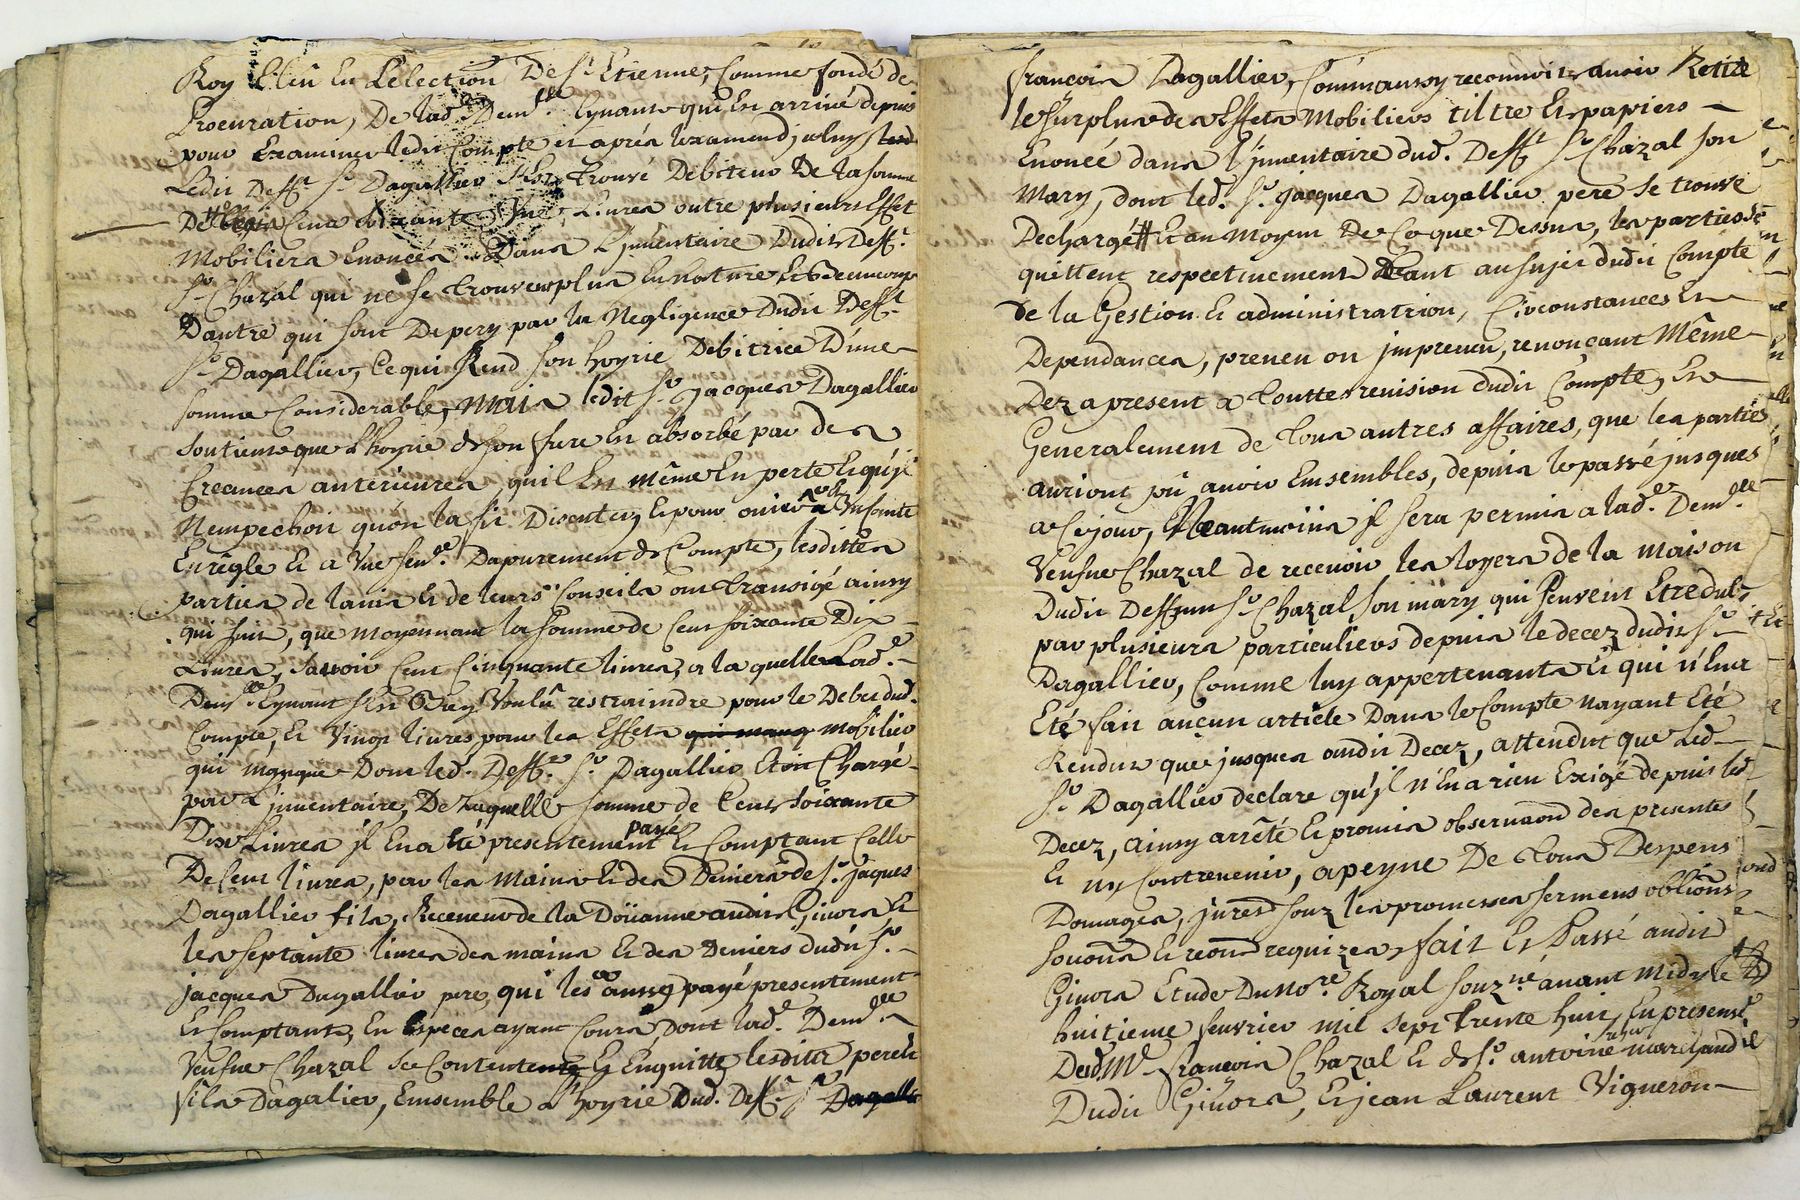 Roy Eleû En Lélection De St Etienne, Comme fondé de
Procuration, De lade Demlle Eynant qui Est arrivé depuis
pour Examiner ledit Compte et aprés lexamen
Ledit Defft Sr Dagallier S'Est trouvé Debiteur De la somme
De Cent soixante Une Livres outre plusieurs Effet
Mobiliers Enoncés Dans L'jnuentaire Dudit Defft
Sr Chazal qui ne se trouvent plus En Nature Et
Dautre qui sont Depery par la Negligence Dudit Defft
Sr Dagallier, Ce qui Rend son hoyrie Debitrice D'une
somme Considerable, mais ledit Sr Jacques Dagallier
soutient que L'hoyrie de son frere Est absorbé par des
Creances anterieures quil Est même En perte Et qu'jl
Nempechoit quon la fit Discuter, Et pour
En régle Et a Dapurement de Compte, lesdittes
parties de lauis Et de leurs Conseils ont transigé ainsy
qui suit, que moyennant la somme de Cent soixante Dix
Livres, sauoir Cent Cinquante livres, a la quelle Lade
Demlle Eynant s'Est Voulû restraindre pour le Debet dud.
Compte, Et Vingt livres pour les Effets qui manq mobilier
qui manque Dont led. Defft Sr Dagallier Etoit Chargé
par L'jnuentaire, De laquelle somme de Cent soixante
Dix Livres jl En a été presentement payé Et Comptant Celle
De Cent livres, par les mains Et des Deniers de Sr Jaques
Dagallier fils, Receueur de la Doüanne audit Giuors Et
les septante livres des mains Et des Deniers dudit Sr
Jacques Dagallier pere, qui les a aussy payé presentement
Et Comptant, En Especes ayant Cours Dont lade Demlle
Veufue Chazal se Contente Et En quitte lesdits pere Et
fils Dagalier, Ensemble L'hoyrie Dud. Defft Sr Dagallier
francois Dagallier, Comm aussy reconnoit auoir Retiré
le surplus des Effets Mobiliers tiltre Et papiers
Enoncé dans l'jnuentaire dud. Defft Sr Chazal son
Mary, dont led. Sr Jacques Dagallier pere se trouve
Dechargé Et au moyen De Ce que Dessus, les parties se
quittent respectiuement tant au sujet dudit Compte
de la Gestion Et administratrion, Circonstances Et
Dependances, preueu ou jmpreueu, renonçant Même
Dez a present a toutte reuision dudit Compte, Et
Generalement de tous autres affaires, que les partie
auriont pû auoir Ensembles, depuis le passé jusques
a Ce jour, Neantmoins jl sera permis a lade Demlle
Veufue Chazal de receuoir les loyers de la maison
Dudit Deffunt Sr Chazal son mary qui peuvent Etre dubs
par plusieurs particuliers depuis le decez dudit Sr
Dagallier, Comme luy appertenants Et qui n'En a
Eté fait aucun article Dans le Compte nayant Eté
Rendu que jusques audit Decez, attendut que Led
Sr Dagallier declare qu'jl n'En a rien Exigé depuis led
Decez, ainsy arrêté Et promis obseruaon des presentes
Et ny Contreuenir, a peyne De tous Despens
Domages, juréd souz les promesses sermens oblions
souons Et reons requizes, fait Et Passé audit
Giuors Etude Du Nore Royal souzné auant Midy le
huitieme feuvrier mil sept trente huit, En presence
Dud Mr francois Chazal Et de Sr antoine marchand
Dudit Giuors, Et jean Laurent Vigneron